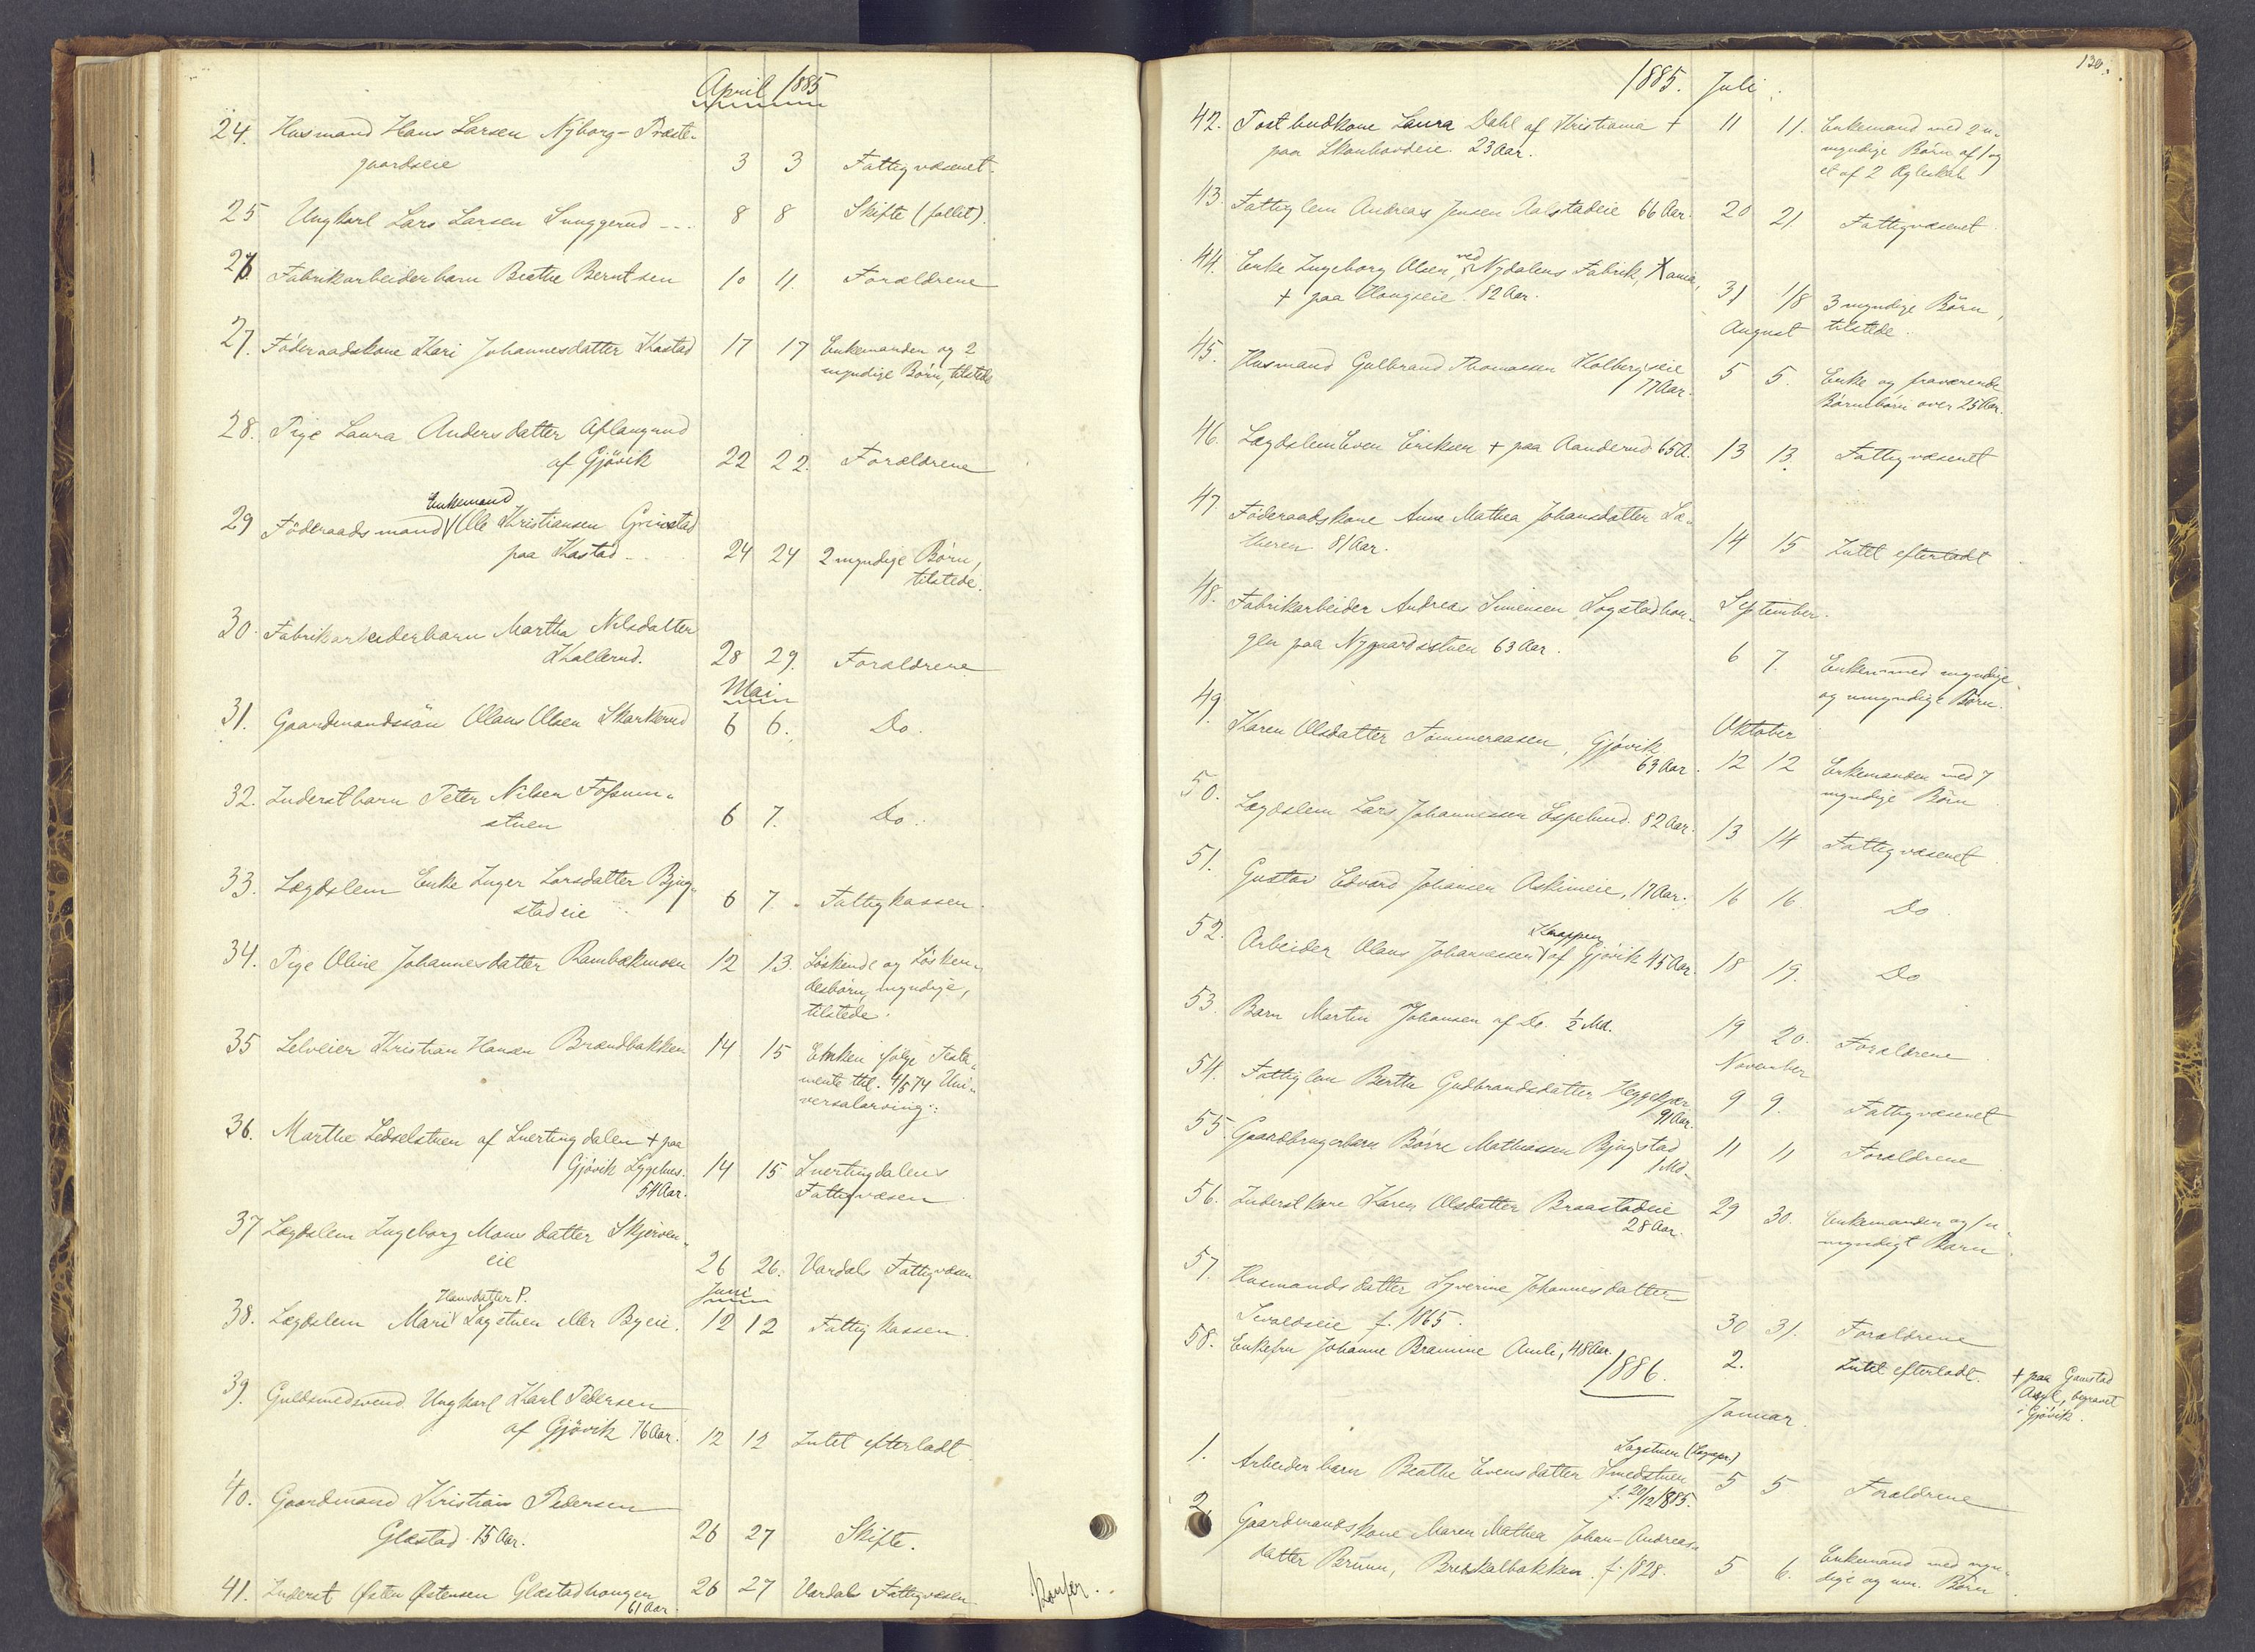 April 1885
24. Husmand Hans Larsen Nyborg-Præste-
gaardseie 3 3 Fattigvæsenet.
25 Ungkarl Lars Larsen Snuggerud --- 8 8 Skifte (faldt).
26 Fabrikarbeiderbarn Beathe Berntsen 10 11. Forældrene
27. Føderaadskone Kari Johannesdatter Kastad 17 17 Enkemanden og 2
myndige Børn, tilstede
28. Pige Laura Andersdatter
af Gjövik 22 22. Forældrene
Enkemand
29 Føderaadsmand Ole Kristiansen Grinstad
paa Kastad -- 24 24 2 myndige Børn,
tilstede.
30. Fabrikarbeiderbarn Martha Nilsdatter
Kallerud. 28 29. Forældrene
Mai
31. Gaardmandssön Olaus Olsen Skarkerud 6 6. Do.
32. Inderstbarn Peter Nilsen Fossum-
stuen 6 7. Do.
33. Lægdslem Enke Inger Larsdatter Bjug-
stadeie 6 7. Fattigkassen.
34. Pige Oline Johannesdatter Rambækmoen 12 13. Söskende og Sösken-
desbørn, myndige,
tilstede.
35 Selveier Kristian Hansen Brændbakken 14 15 Enken ifölge Testa-
mente ttl. 4/5 74 Uni-
versalarving.
36. Marthe Ledselstuen af Snertingdalen + paa
Gjövik Sygehus. 14 15 Snertingdalens
54 Aar. Fattigvæsen
37 Lægdslem Ingeborg Monsdatter Skjerven-
eie 26 26. Vardals Fattigvæsen
Hansdatter P. Juni
38. Lægdslem Mari Sagstuen eller Byeie. 12 12 Fattigkassen.
39. Guldsmedsvend Ungkarl Karl Pedersen
af Gjövik 76 Aar. 12 12 Intet efterladt.
40. Gaardmand Kristian Pedersen
Glæstad 75 Aar. 26 27 Skifte.
41. Inderst Østen Østensen Glæstadhaugen 26 27 Vardals Fattigvæsen
61 Aar.
130.
1885. Juli.
42. Postbudkone Laura Dahl af Kristiania + 11 11. Enkemand med 2 u-
paa Skonhovdeie. 23 Aar. myndige Børn af 1 og
et af 2 Ægteskab
43. Fattiglem Andreas Jensen Aalstadeie 66 Aar. 20 21. Fattigvæsenet
44. Enke Ingeborg Olsen, ved Nydalens Fabrik, Xania,
+ paa Haugseie. 82 Aar. 31 1/8 3 myndige Børn,
August tilstede.
45. Husmand Gulbrand Thomassen Kolbergseie 5 5. Enke og fraværende
77 Aar. Børnebørn over 25 Aar.
46. Lægdslem Even Eriksen + paa Aanderud 65 A. 13 13. Fattigvæsenet
47 Føderaadskone Anne Mathea Johansdatter Sæ-
theren 81 Aar. 14 15 Intet efterladt
48. Fabrikarbeider Andreas Simensen Sogstadhau- September.
gen paa Nygaardsstuen 63 Aar. 6 7. Enken med myndige
og umyndige Børn.
49. Oktober
Karen Olsdatter Tömmeraasen, Gjövik
63 Aar. 12 12 Enkemanden med 7
myndige Børn
50. Lægdslem Lars Johannessen Espelund. 82 Aar. 13 14 Fattigvæsenet
51. Gustav Edvard Johansen Askimeie, 17 Aar. 16 16. Do
Knappen
52. Arbeider Olaus Johannessen af Gjövik 45 Aar. 18 19. Do
53. Barn Martin Johansen af Do. 1/2 Md. 19 20. Forældrene
November
54. Fattiglem Berthe Gudbrandsdatter 9 9. Fattigvæsenet
91 Aar.
55. Gaardbrugerbarn Börre Mathiassen Bjugstad 11 11 Forældrene
1 Md.
56. Inderstkone Karen Olsdatter Braastadeie 29 30. Enkemanden og 1 u-
28 Aar. myndigt Barn.
57. Husmandsdatter Syverine Johannesdatter
Sevaldseie f. 1865. 30 31. Forældrene
58. Enkefru Johanne Bramine Amli, 48 Aar. 2. Intet efterladt. + paa Gaustad
Asyl, begravet
i Gjövik.
1886.
Januar.
Sagstuen
1. Arbeiderbarn Beathe Evensdatter Smedstuen 5 5 Forældrene
f. 20/12 1885.
2. Gaardmandskone Maren Mathea Johan-Andreas-
datter Bruun, Bredskalbakken. f. 1828. 5 6. Enkemand med myn-
dige og um. Børn